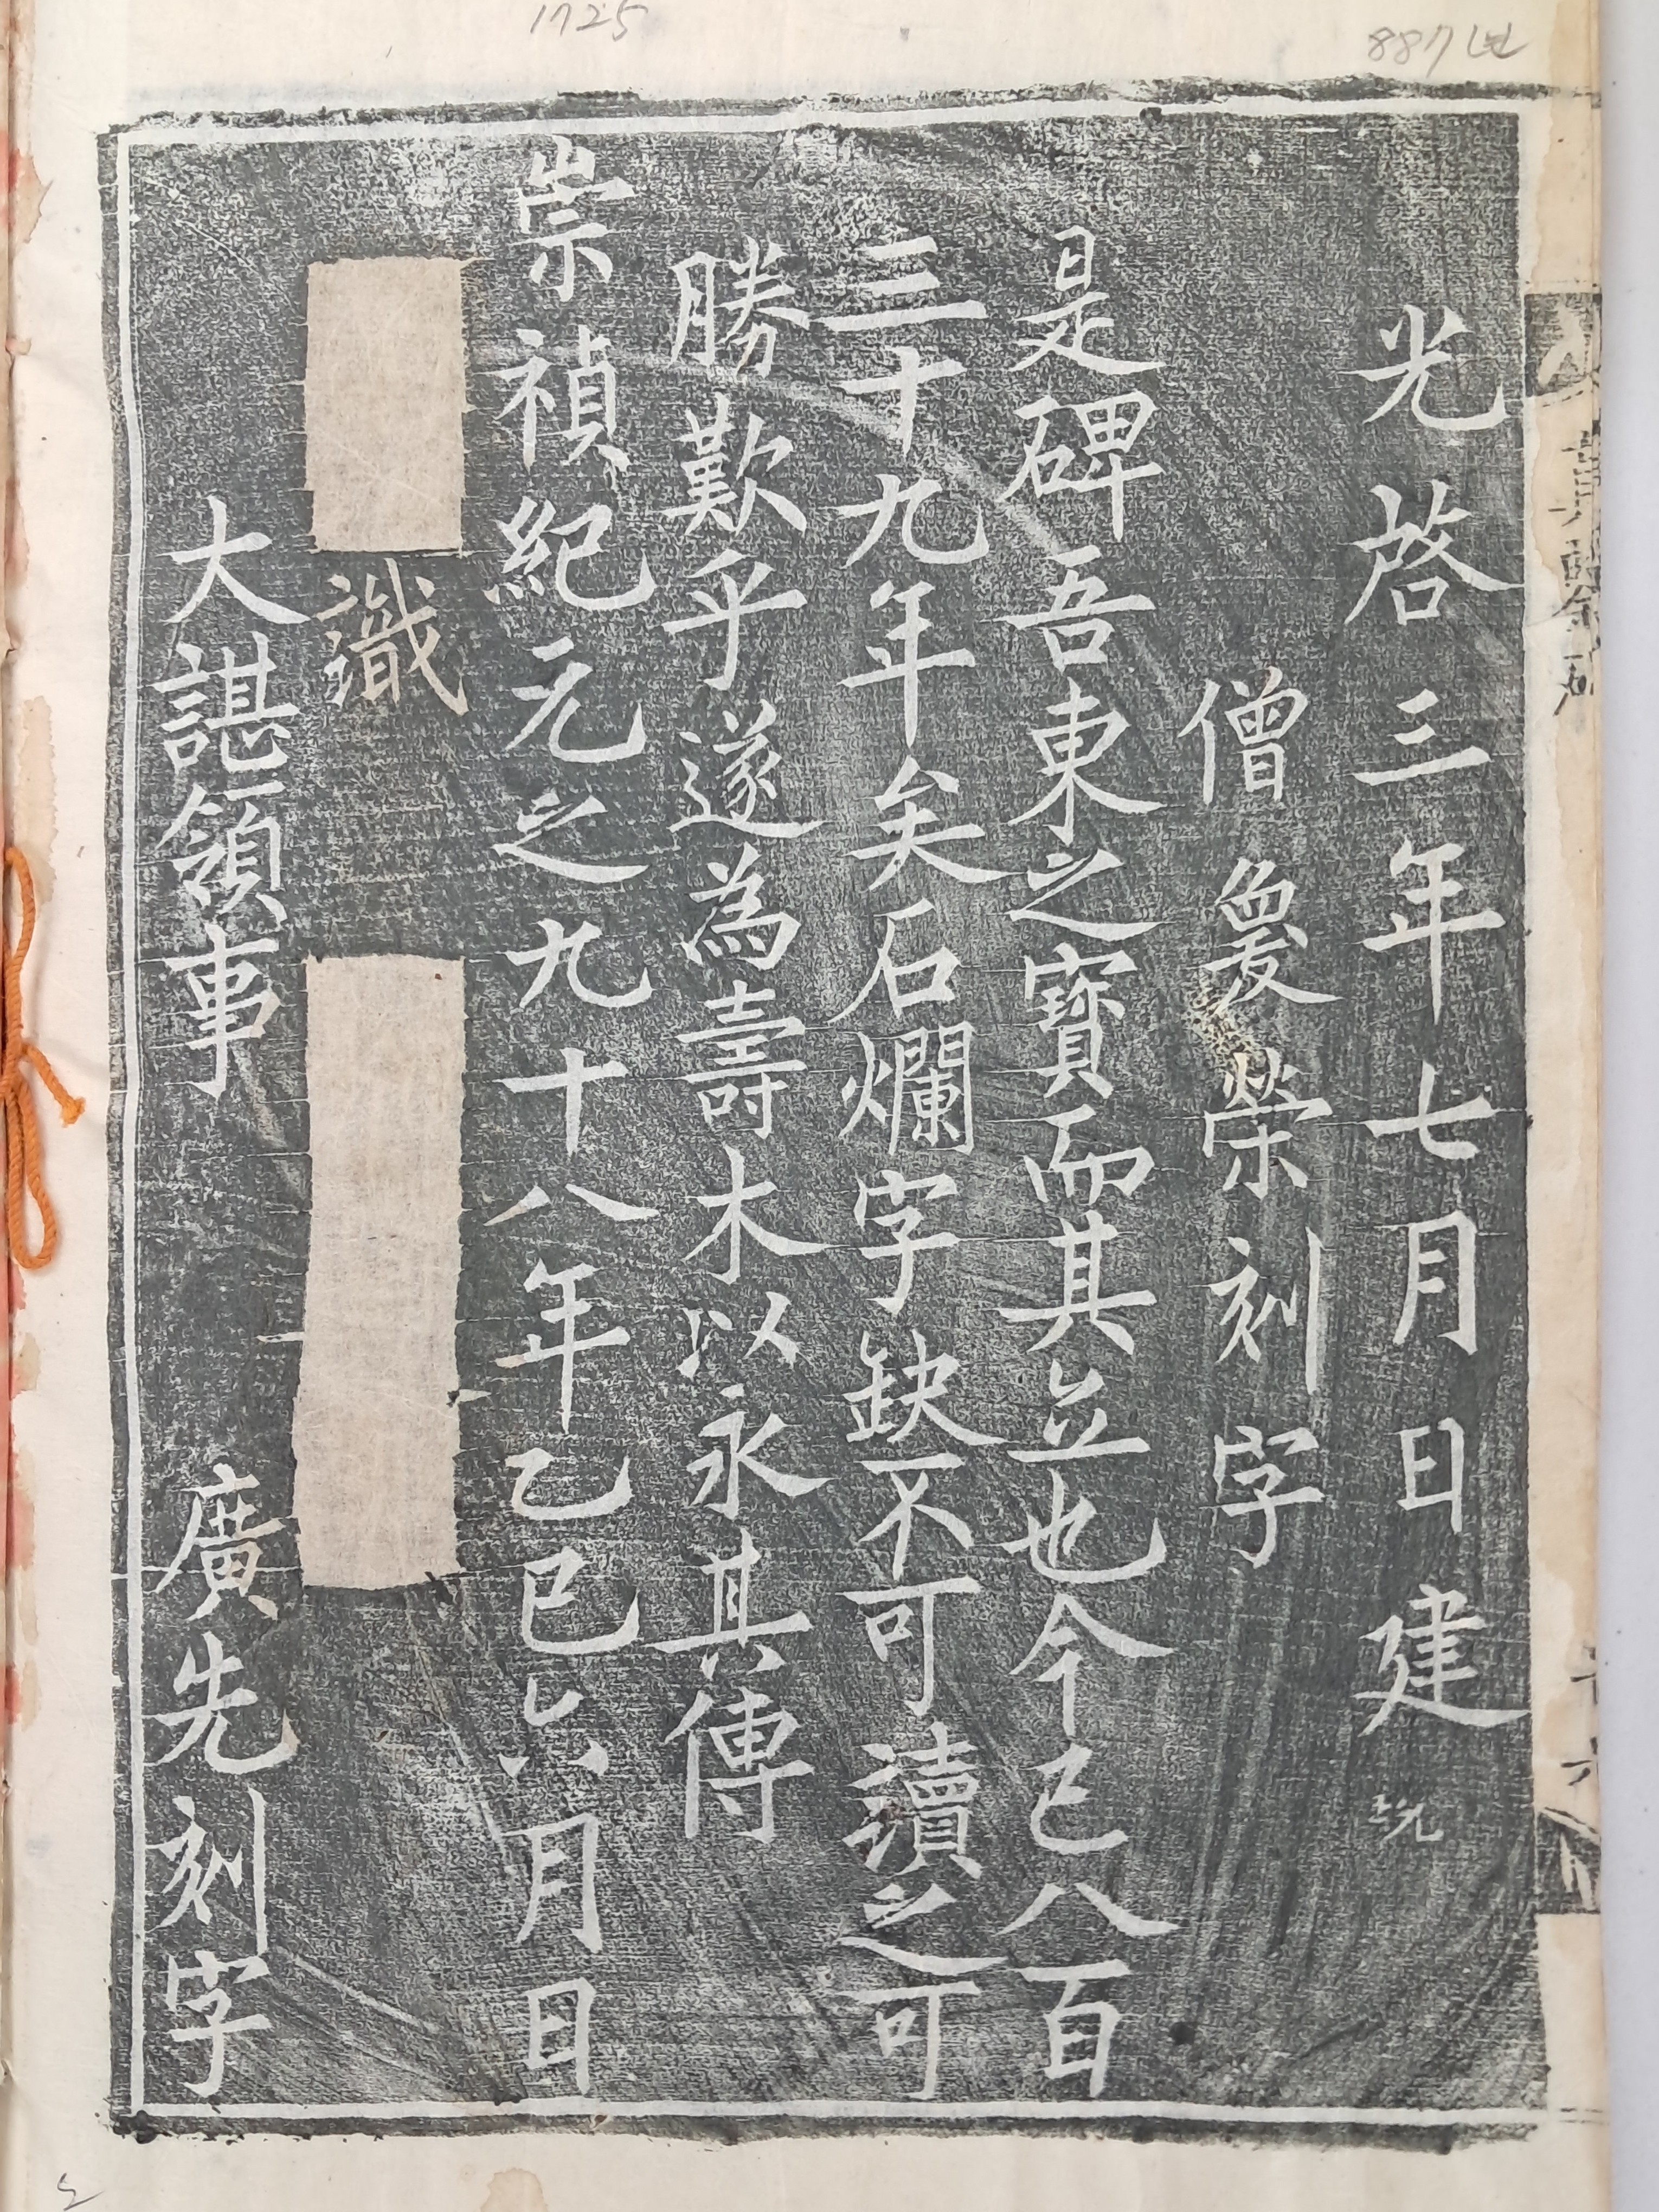 1725
887년
光啓三年七月日建
僧奐榮刻字
是碑吾東之寶而其立也今已八百
三十九年矣石爛字缺不可讀之可
勝歎乎遂為壽木以永其傳
崇禎紀元之九十八年乙巳六月日
識
大諶領事 廣先刻字